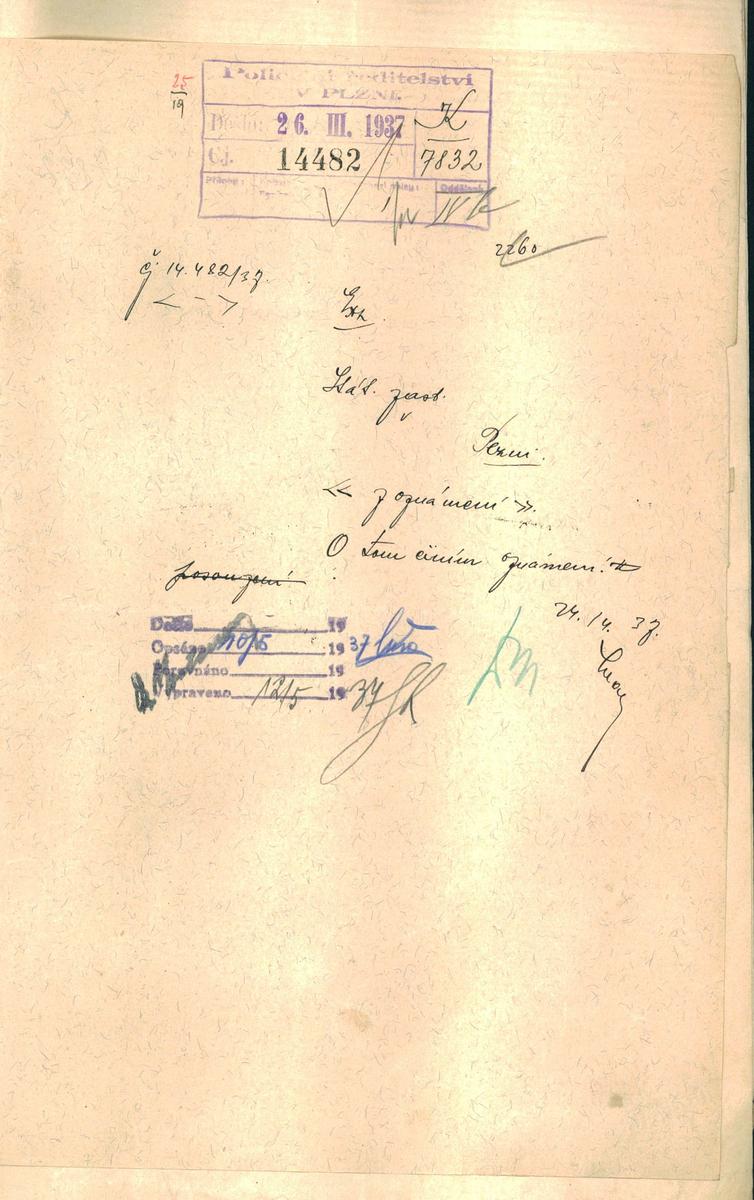 25
19
Policejní ředitelství
V PLZNI.
Došlo: 26. III. 1937 K
Čj. 14482 7832
Přílohy: Oddělení:
IV
2260
Čj 14.482/37.
< - >
Stát. zast.
v
Plzni.
« z oznámení ».
O tom činím oznámení.
Došlo 19
Opsáno 10/5 1937
Porovnáno 19
Vypraveno 12/5 1937
24./4. 37.